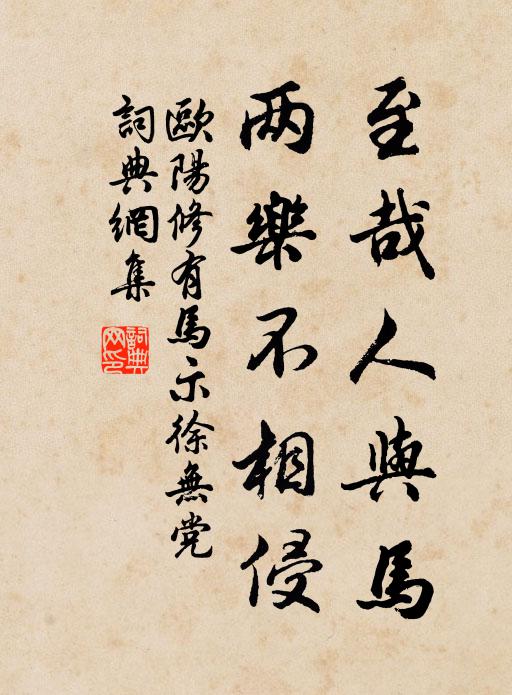 至哉人與馬
两樂不相侵
歐陽修有馬示徐無党
詞典網集
詞典網印